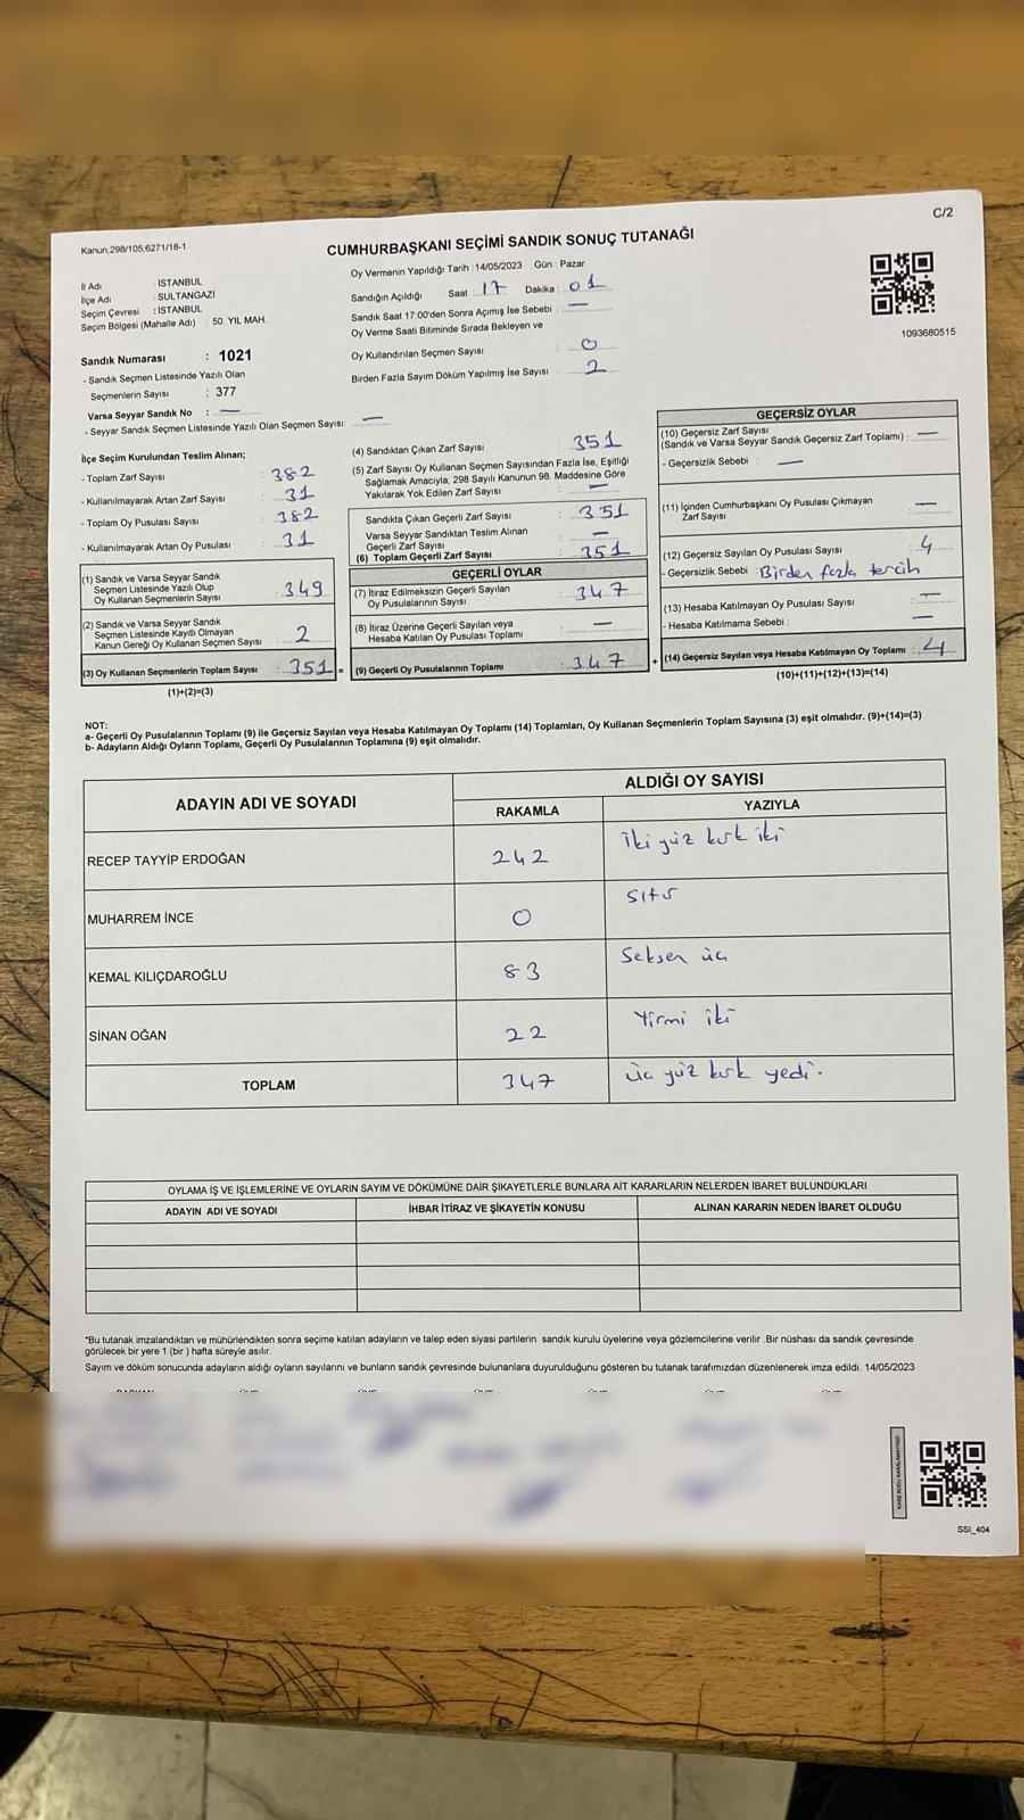 C/2
Kanun:298/105,6271/18-1
CUMHURBAŞKANI SEÇİMİ SANDIK SONUÇ TUTANAĞI
İl Adı : İSTANBUL
İlçe Adı : SULTANGAZİ
Seçim Çevresi : İSTANBUL
Seçim Bölgesi (Mahalle Adı) 50. YIL MAH.
Sandık Numarası : 1021
- Sandık Seçmen Listesinde Yazılı Olan
Seçmenlerin Sayısı : 377
Varsa Seyyar Sandık No : —
- Seyyar Sandık Seçmen Listesinde Yazılı Olan Seçmen Sayısı: —
Oy Vermenin Yapıldığı Tarih : 14/05/2023 Gün : Pazar
Sandığın Açıldığı Saat 17 Dakika : 01
Sandık Saat 17:00'den Sonra Açımış İse Sebebi : —
Oy Verme Saati Bitiminde Sırada Bekleyen ve
Oy Kullandırılan Seçmen Sayısı : 0
Birden Fazla Sayım Döküm Yapılmış İse Sayısı : 2
1093680515
İlçe Seçim Kurulundan Teslim Alınan;
- Toplam Zarf Sayısı : 382
- Kullanılmayarak Artan Zarf Sayısı : 31
- Toplam Oy Pusulası Sayısı : 382
- Kullanılmayarak Artan Oy Pusulası : 31
(1) Sandık ve Varsa Seyyar Sandık
Seçmen Listesinde Yazılı Olup
Oy Kullanan Seçmenlerin Sayısı : 349
(2) Sandık ve Varsa Seyyar Sandık
Seçmen Listesinde Kayıtlı Olmayan
Kanun Gereği Oy Kullanan Seçmen Sayısı : 2
(3) Oy Kullanan Seçmenlerin Toplam Sayısı : 351 =
(1)+(2)=(3)
(4) Sandıktan Çıkan Zarf Sayısı : 351
(5) Zarf Sayısı Oy Kullanan Seçmen Sayısından Fazla İse, Eşitliği
Sağlamak Amacıyla, 298 Sayılı Kanunun 98. Maddesine Göre
Yakılarak Yok Edilen Zarf Sayısı : —
Sandıkta Çıkan Geçerli Zarf Sayısı : 351
Varsa Seyyar Sandıktan Teslim Alınan
Geçerli Zarf Sayısı : —
(6) Toplam Geçerli Zarf Sayısı : 351
GEÇERLİ OYLAR
(7) İtiraz Edilmeksizin Geçerli Sayılan
Oy Pusulalarının Sayısı : 347
(8) İtiraz Üzerine Geçerli Sayılan veya
Hesaba Katılan Oy Pusulası Toplamı : —
(9) Geçerli Oy Pusulalarının Toplamı : 347 +
GEÇERSİZ OYLAR
(10) Geçersiz Zarf Sayısı
(Sandık ve Varsa Seyyar Sandık Geçersiz Zarf Toplamı) : —
- Geçersizlik Sebebi : —
(11) İçinden Cumhurbaşkanı Oy Pusulası Çıkmayan
Zarf Sayısı : —
(12) Geçersiz Sayılan Oy Pusulası Sayısı : 4
- Geçersizlik Sebebi : Birden fazla tercih
(13) Hesaba Katılmayan Oy Pusulası Sayısı : —
- Hesaba Katılmama Sebebi : —
(14) Geçersiz Sayılan veya Hesaba Katılmayan Oy Toplamı : 4
(10)+(11)+(12)+(13)=(14)
NOT:
a- Geçerli Oy Pusulalarının Toplamı (9) ile Geçersiz Sayılan veya Hesaba Katılmayan Oy Toplamı (14) Toplamları, Oy Kullanan Seçmenlerin Toplam Sayısına (3) eşit olmalıdır. (9)+(14)=(3)
b- Adayların Aldığı Oyların Toplamı, Geçerli Oy Pusulalarının Toplamına (9) eşit olmalıdır.
ADAYIN ADI VE SOYADI
ALDIĞI OY SAYISI
RAKAMLA YAZIYLA
RECEP TAYYİP ERDOĞAN 242 İki yüz kırk iki
MUHARREM İNCE 0 Sıfır
KEMAL KILIÇDAROĞLU 83 Seksen üç
SİNAN OĞAN 22 Yirmi iki
TOPLAM 347 Üç yüz kırk yedi.
OYLAMA İŞ VE İŞLEMLERİNE VE OYLARIN SAYIM VE DÖKÜMÜNE DAİR ŞİKAYETLERLE BUNLARA AİT KARARLARIN NELERDEN İBARET BULUNDUKLARI
ADAYIN ADI VE SOYADI İHBAR İTİRAZ VE ŞİKAYETİN KONUSU ALINAN KARARIN NEDEN İBARET OLDUĞU
*Bu tutanak imzalandıktan ve mühürlendikten sonra seçime katılan adayların ve talep eden siyasi partilerin sandık kurulu üyelerine veya gözlemcilerine verilir. Bir nüshası da sandık çevresinde
görülecek bir yere 1 (bir) hafta süreyle asılır.
Sayım ve döküm sonucunda adayların aldığı oyların sayılarını ve bunların sandık çevresinde bulunanlara duyurulduğunu gösteren bu tutanak tarafımızdan düzenlenerek imza edildi. 14/05/2023
SSI_404